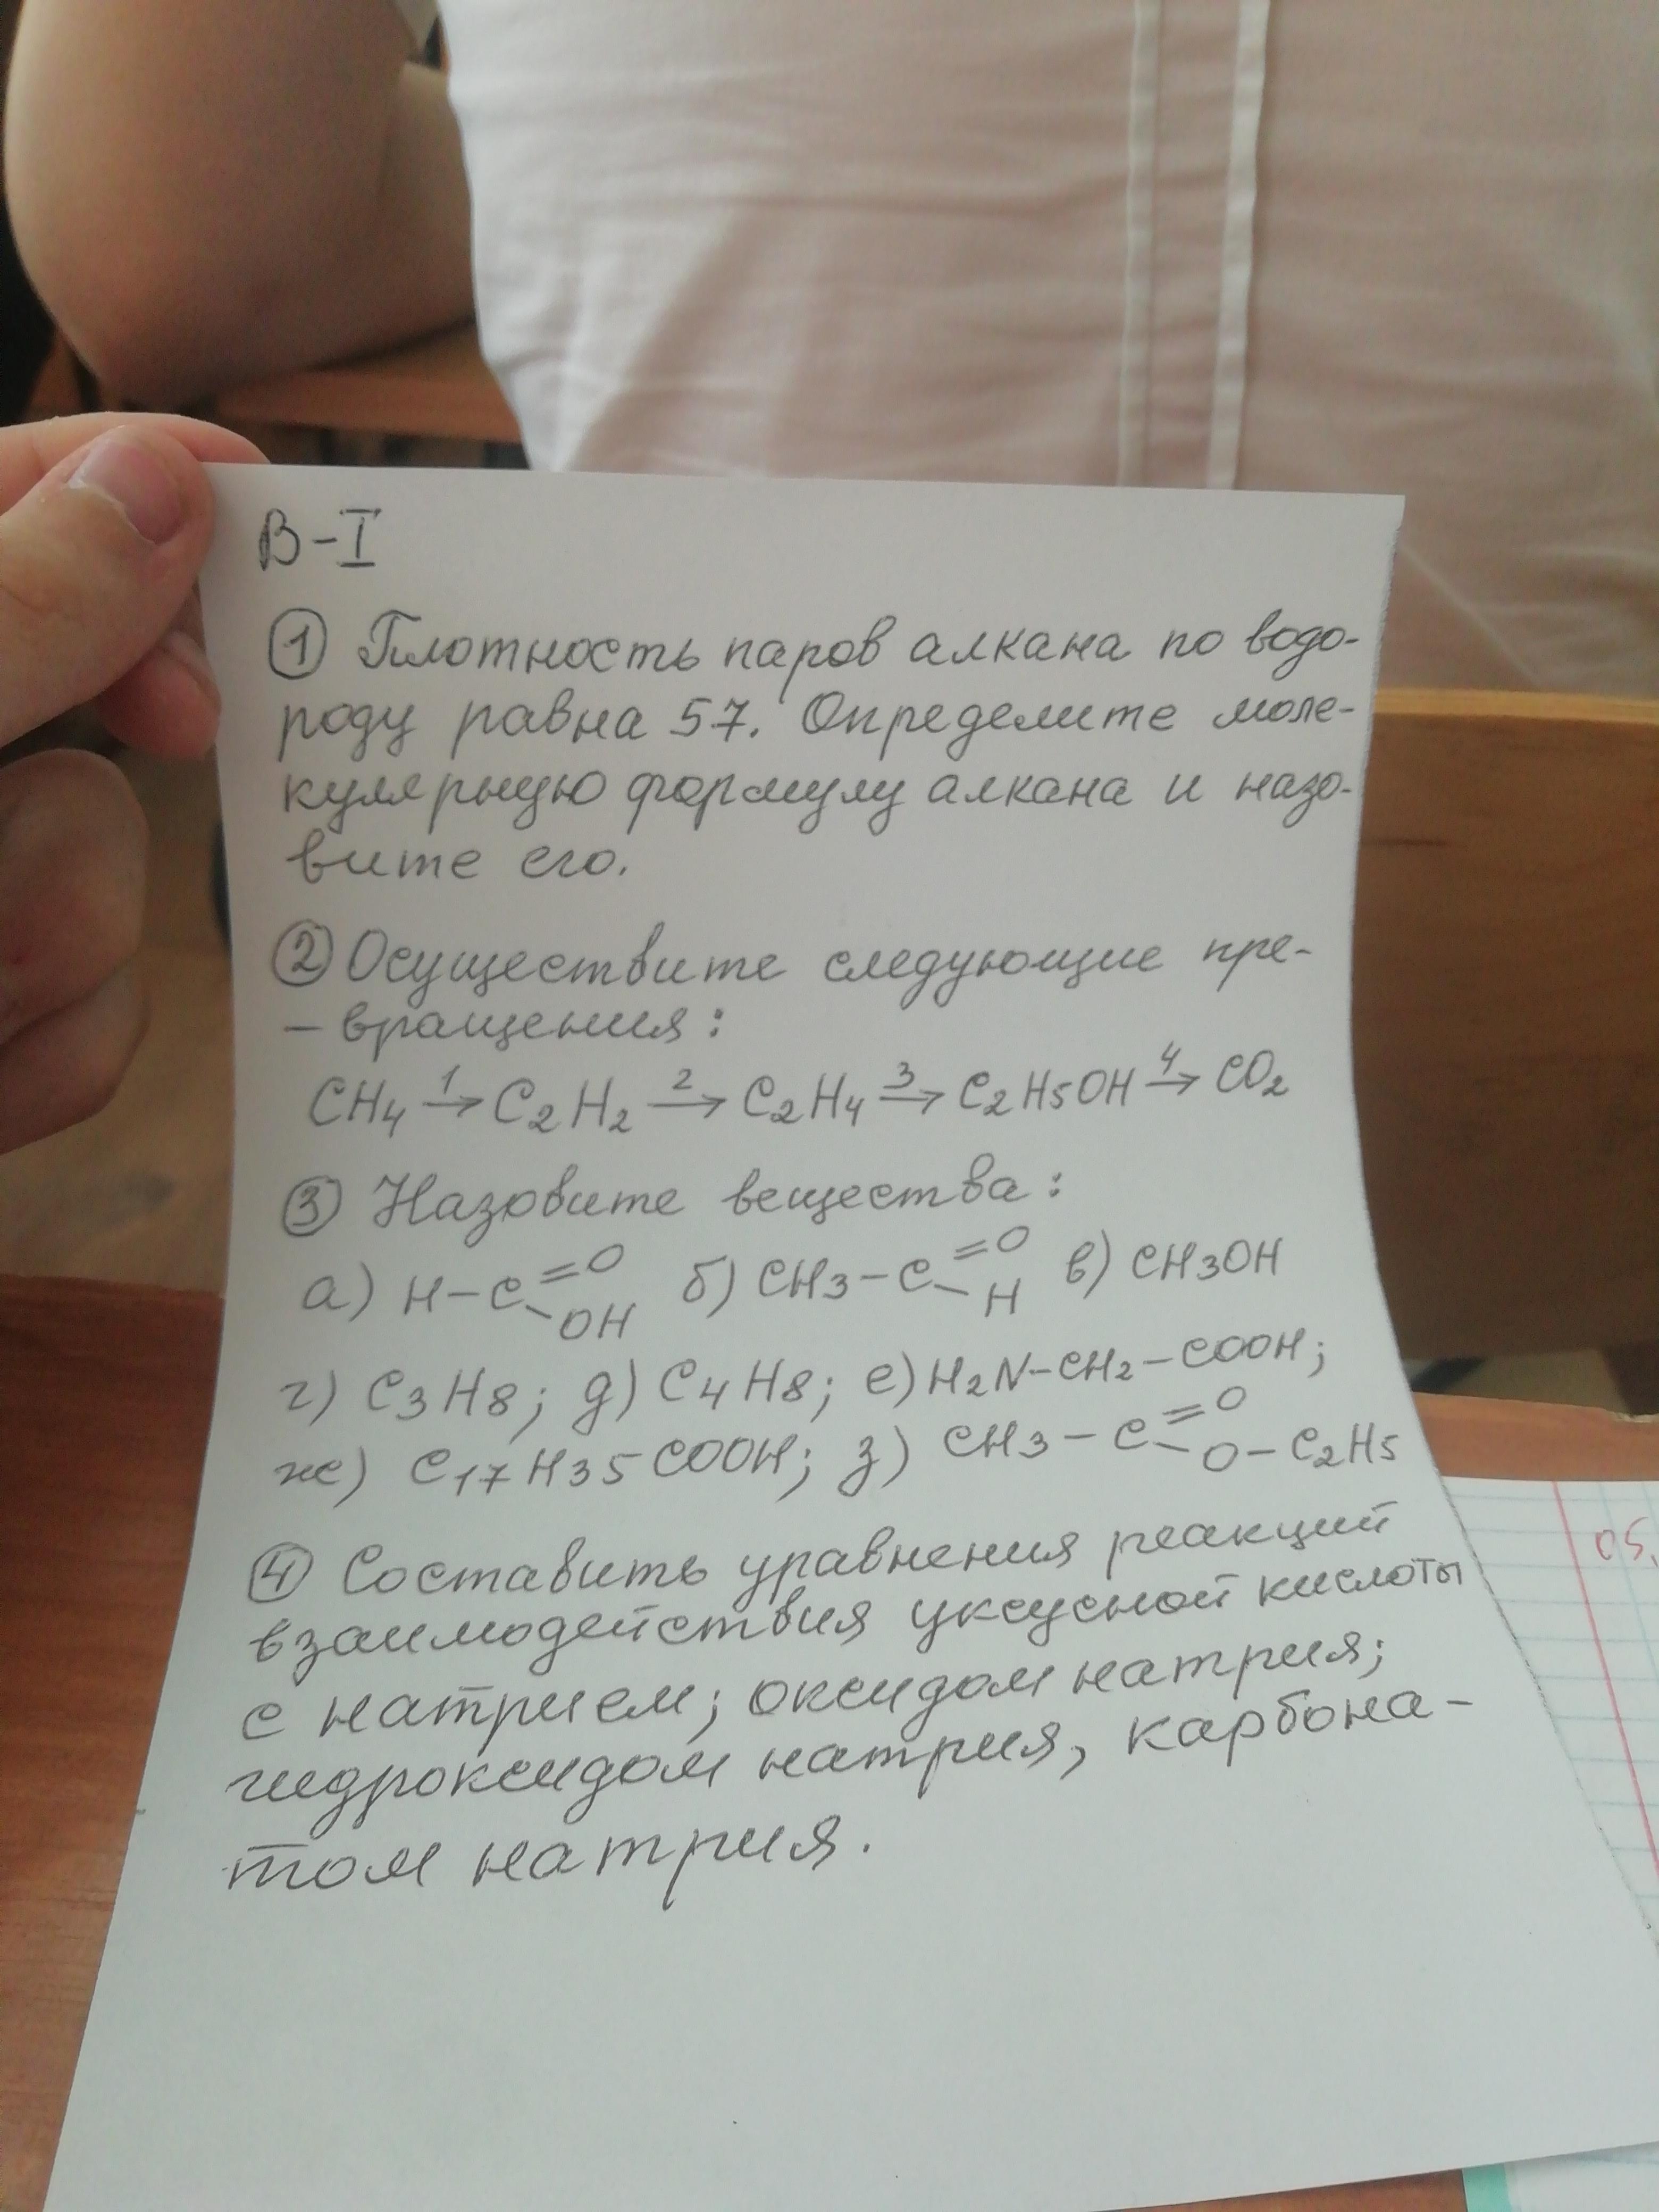 В-I
① Плотность паров алкана по водо-
роду равна 57. Определите моле-
кулярную формулу алкана и назо-
вите его.
② Осуществите следующие пре-
- вращения:
CH₄ →¹ C₂H₂ →² C₂H₄ →³ C₂H₅OH →⁴ CO₂
③ Назовите вещества:
а) H-C=O -OH б) CH₃-C=O -H в) CH₃OH
г) C₃H₈; д) C₄H₈; е) H₂N-CH₂-COOH;
ж) C₁₇H₃₅COOH; з) CH₃-C=O -O-C₂H₅
④ Составить уравнения реакций
взаимодействия уксусной кислоты
с натрием; оксидом натрия;
гидроксидом натрия, карбона-
том натрия.
05.